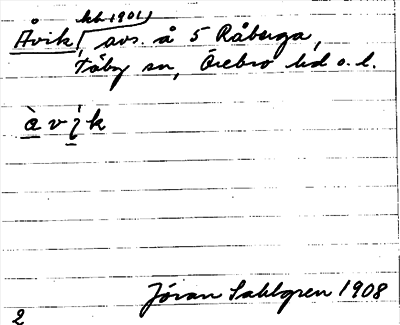 (kb 1901)
Åvik, avs. å 5 Råberga,
Täby sn, Örebro hd o. l.
å v i k
Jöran Sahlgren 1908
2